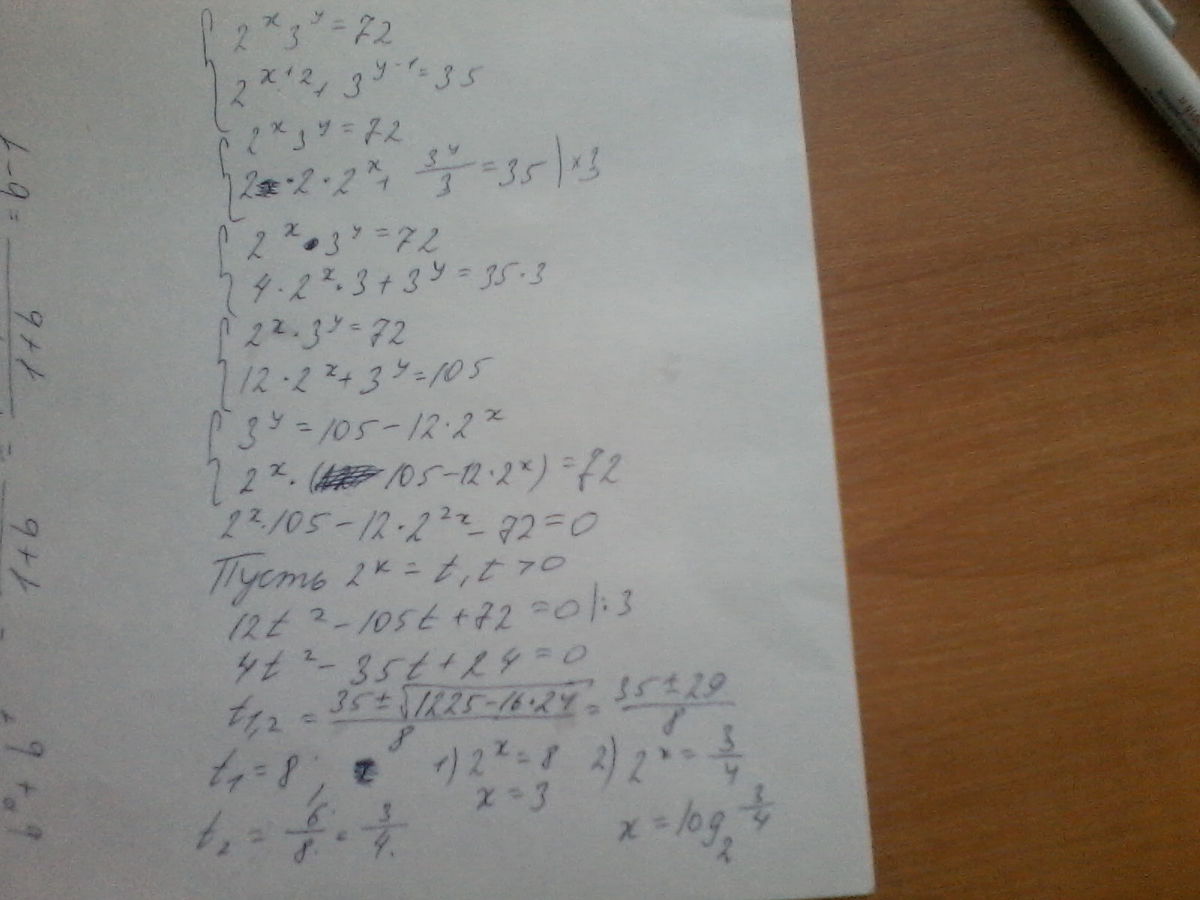 2^x 3^y = 72
2^(x+2) + 3^(y-1) = 35
2^x 3^y = 72
2 · 2 · 2^x + 3^y/3 = 35 | ×3
2^x · 3^y = 72
4 · 2^x · 3 + 3^y = 35 · 3
2^x · 3^y = 72
12 · 2^x + 3^y = 105
3^y = 105 - 12 · 2^x
2^x · (105 - 12 · 2^x) = 72
2^x · 105 - 12 · 2^(2x) - 72 = 0
Пусть 2^x = t, t > 0
12t^2 - 105t + 72 = 0 | : 3
4t^2 - 35t + 24 = 0
t1,2 = (35 ± √(1225 - 16 · 24))/8 = (35 ± 29)/8
t1 = 8, 1) 2^x = 8 2) 2^x = 3/4
x = 3
t2 = 6/8 = 3/4. x = log2 3/4
1+b
1+b
= b-1